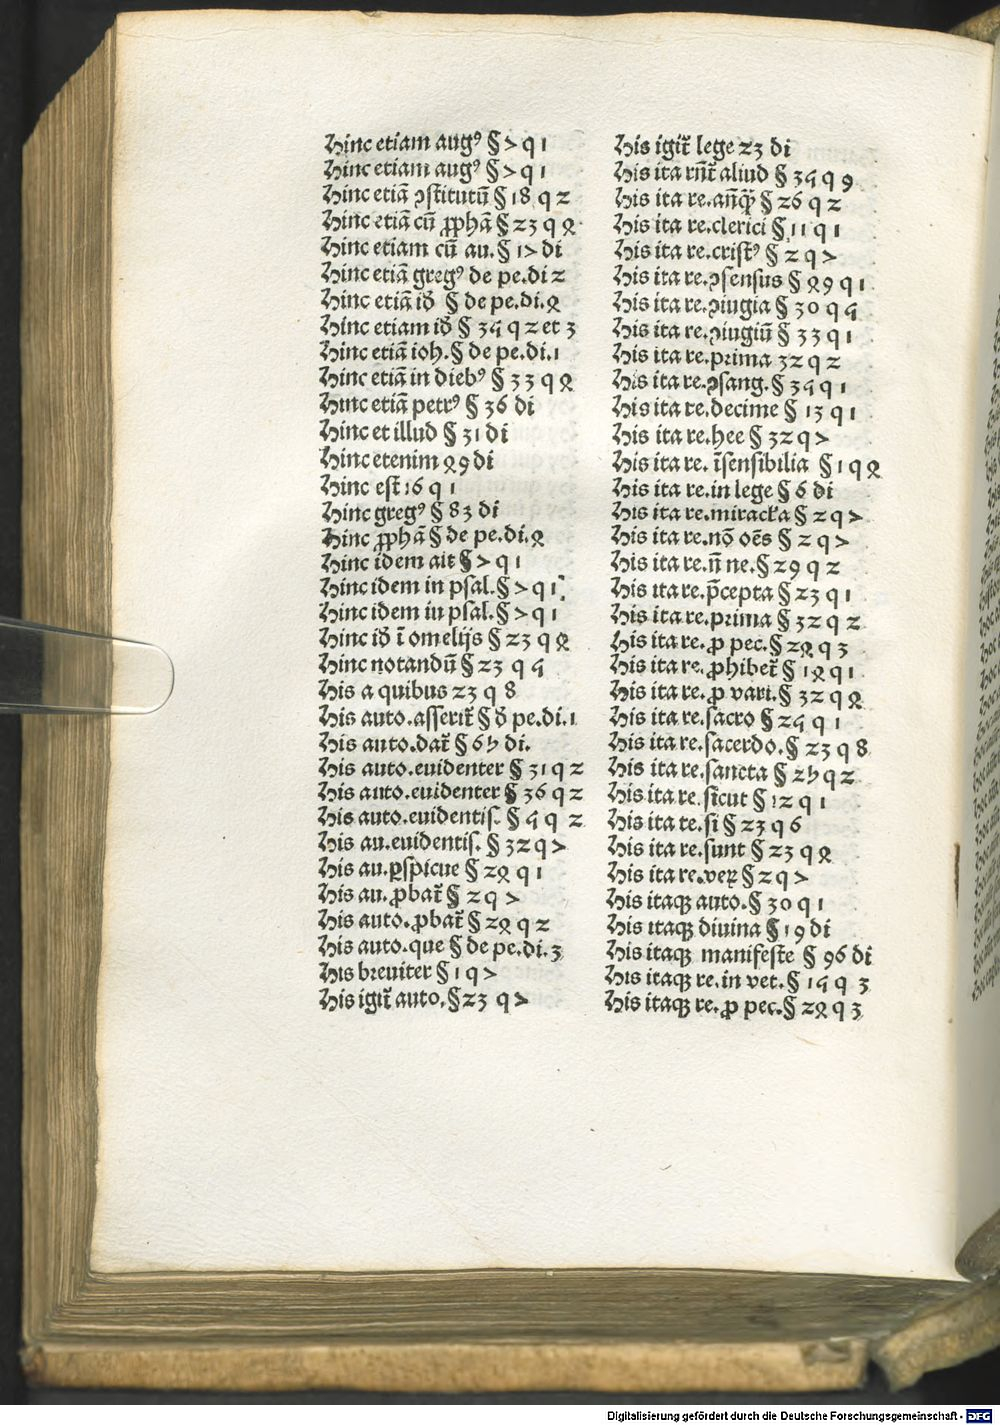 Hinc etiam augꝰ § 7 q 1
Hinc etiam augꝰ § 7 q 1
Hinc etiā ꝯstitutū § 18 q 2
Hinc etiā cū ꝓphā § 23 q 4
Hinc etiam cū au. § 17 di
Hinc etiā gregꝰ de pe.di 2
Hinc etiā iō § de pe.di.4
Hinc etiam iō § 35 q 2 et 3
Hinc etiā ioh.§ de pe.di.1
Hinc etiā in diebꝰ § 33 q 4
Hinc etiā petrꝰ § 36 di
Hinc et illud § 31 di
Hinc etenim 49 di
Hinc est̄ 16 q 1
Hinc gregꝰ § 83 di
Hinc ꝓphā § de pe.di.4
Hinc idem ait § 7 q 1
Hinc idem in psal.§ 7 q 1.
Hinc idem in psal.§ 7 q 1
Hinc iō ī omelijs § 23 q 4
Hinc notandū § 23 q 5
His a quibus 23 q 8
His auto.asserit̄ § đ pe.di.1
His auto.dat̄ § 65 di.
His auto.euidenter § 31 q 2
His auto.euidenter § 36 q 2
His auto.euidentis. § 5 q 2
His au.euidentis. § 32 q 7
His au.ꝑspicue § 24 q 1
His au.ꝓbat̄ § 2 q 7
His auto.ꝓbat̄ § 24 q 2
His auto.que § de pe.di.3
His breuiter § 1 q 7
His igit̄ auto.§ 23 q 7
His igit̄ lege 23 di
His ita rn̄t̄ aliud § 35 q 9
His ita re.an̄q̄ꝫ § 26 q 2
His ita re.clerici § 11 q 1
His ita re.cristꝰ § 2 q 7
His ita re.ꝯsensus § 49 q 1
His ita re.ꝯiugia § 30 q 5
His ita re.ꝯiugiū § 33 q 1
His ita re.prima 32 q 2
His ita re.ꝯsang.§ 35 q 1
His ita re.decime § 13 q 1
His ita re.hee § 32 q 7
His ita re. īsensibilia § 1 q 4
His ita re.in lege § 6 di
His ita re.miracl̄a § 2 q 7
His ita re.nō oēs § 2 q 7
His ita re.n̄ ne.§ 29 q 2
His ita re.p̄cepta § 23 q 1
His ita re.prima § 32 q 2
His ita re.ꝓ pec.§ 24 q 3
His ita re.ꝓhibet̄ § 14 q 1
His ita re.ꝓ vari.§ 32 q 4
His ita re.sacro § 25 q 1
His ita re.sacerdo.§ 23 q 8
His ita re.sancta § 25 q 2
His ita re.sicut § 12 q 1
His ita re.si § 23 q 6
His ita re.sunt § 23 q 4
His ita re.veꝝ § 2 q 7
His itaqꝫ auto.§ 30 q 1
His itaqꝫ diuina § 19 di
His itaqꝫ manifeste § 96 di
His itaqꝫ re.in vet.§ 15 q 3
His itaqꝫ re.ꝓ pec.§ 24 q 3
Digitalisierung gefördert durch die Deutsche Forschungsgemeinschaft - DFG